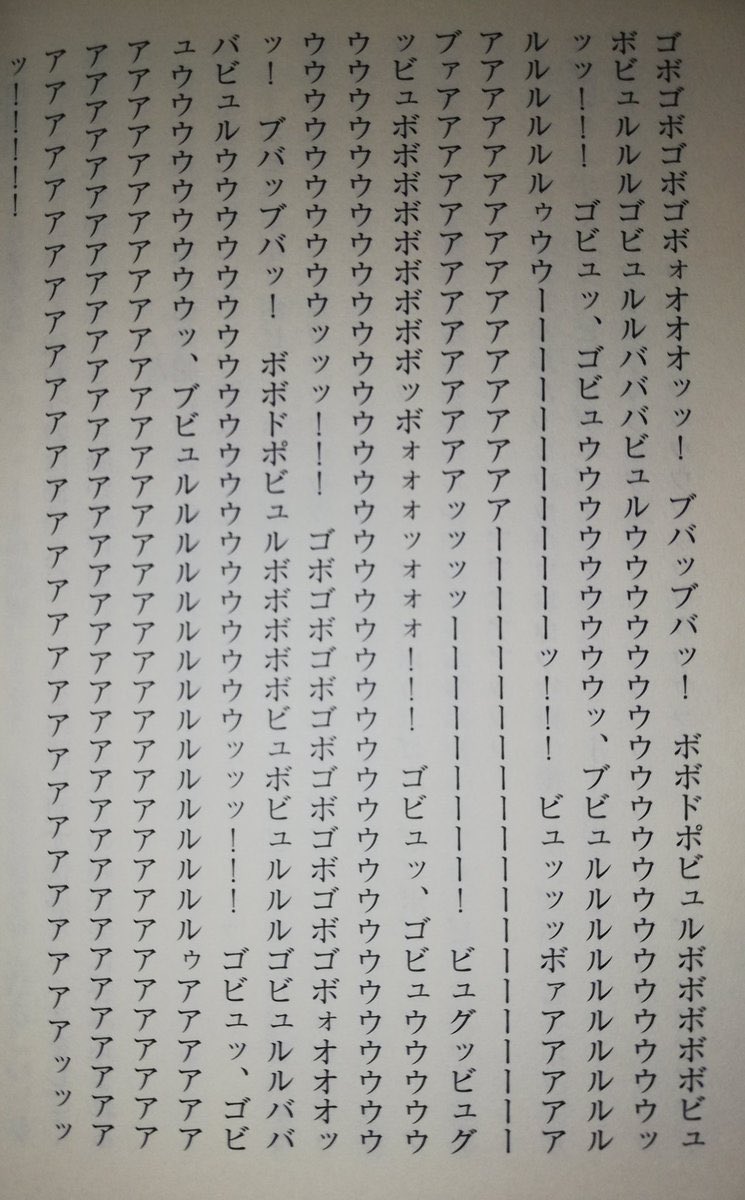 ゴボゴボゴボゴボォオオオッッ！　ブバッブバッ！　ボボドポビュルボボボボボビュ
ボビュルルルゴビュルルバババビュルウウウウウウウウウウウウウウウウウウウウッ
ッッ！！！　ゴビュッ、ゴビュウウウウウウウウウッ、ブビュルルルルルルルルルル
ルルルルルルゥウウーーーーーーーーーーーーッ！！！　ビュッッッボァアアアアア
アアアアアアアアアアアアアアアアアーーーーーーーーーーーーーーーーーーーーー
ブァアアアアアアアアアアアアアアッッッッーーーーーーーーー！　ビュグッビュグ
ッビュボボボボボボボボボッボォォォッォォォ！！！　ゴビュッ、ゴビュウウウウウ
ウウウウウウウウウウウウウウウウウウウウウウウウウウウウウウウウウウウウウウ
ウウウウウウウウウウッッッ！！！　ゴボゴボゴボゴボゴボゴボゴボゴボォオオオッ
ッ！　ブバッブバッ！　ボボドポビュルボボボボボビュボビュルルルゴビュルルババ
バビュルウウウウウウウウウウウウウウウウウウウウッッッ！！！　ゴビュッ、ゴビ
ュウウウウウウウウウッ、ブビュルルルルルルルルルルルルルルルルゥアアアアアア
アアアアアアアアアアアアアアアアアアアアアアアアアアアアアアアアアアアアアア
アアアアアアアアアアアアアアアアアアアアアアアアアアアアアアアアアアアアアア
アアアアアアアアアアアアアアアアアアアアアアアアアアアアアアアアアアアッッッ
ッ！！！！！